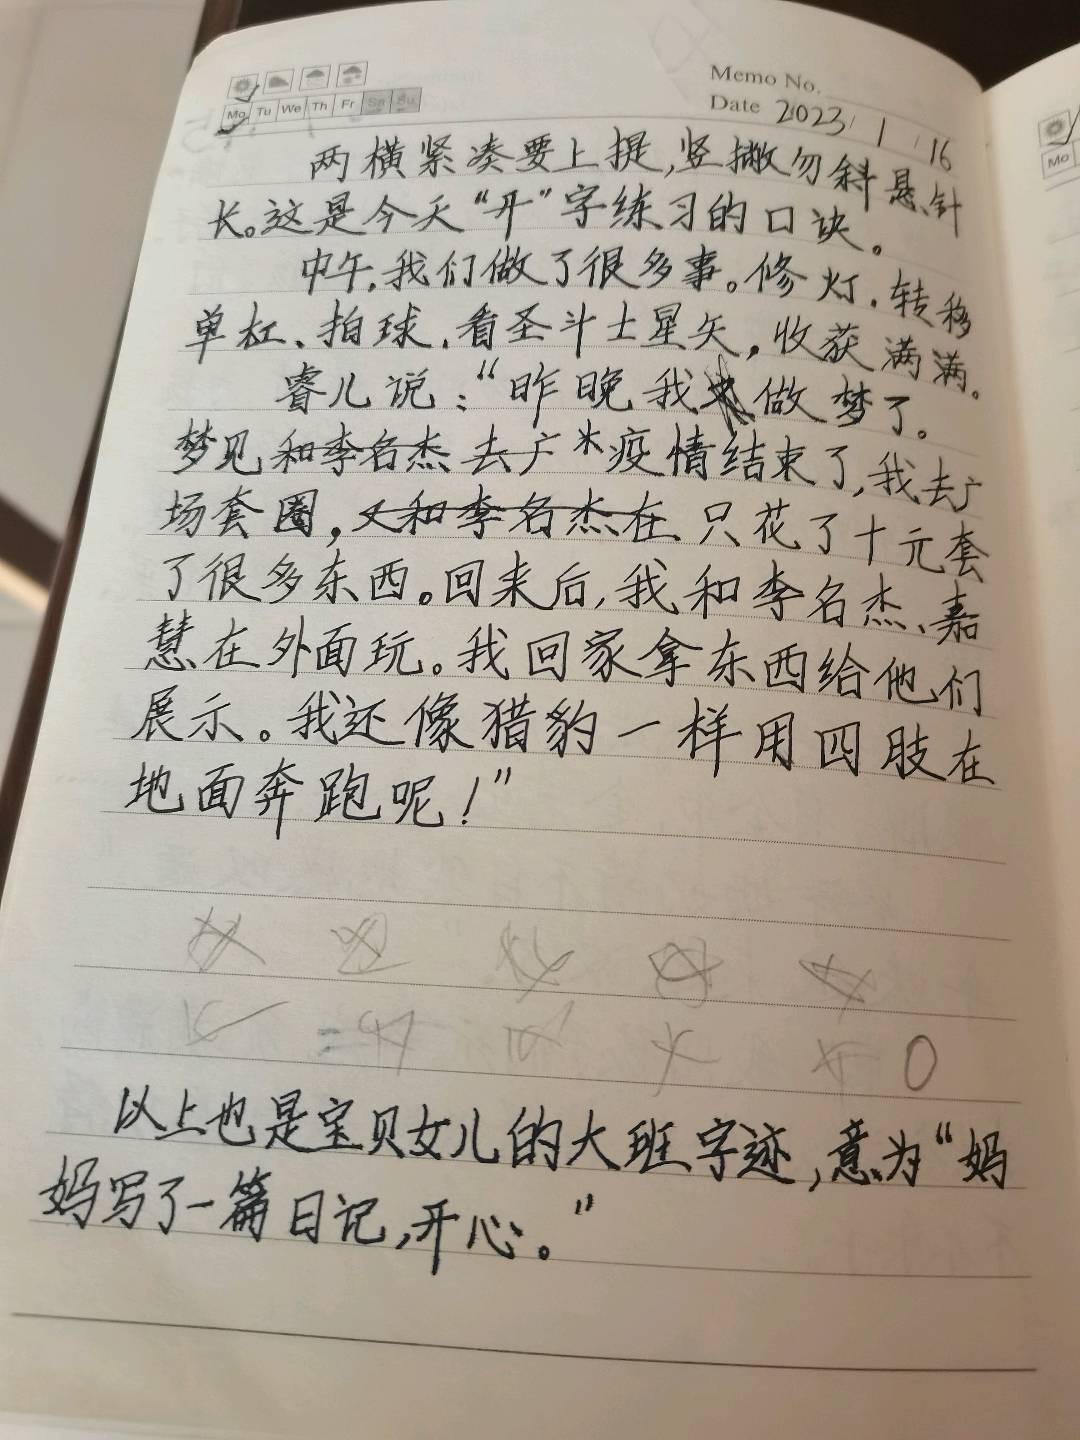 Memo No.
Mo Tu We Th Fr Sa Su
Date 2023/1/16
两横紧凑要上提,竖撇勿斜悬针
长。这是今天“开”字练习的口诀。
中午,我们做了很多事。修灯、转移
单杠、拍球、看圣斗士星矢,收获满满。
睿儿说:“昨晚我做梦了。
梦见和李名杰去广疫情结束了,我去广
场套圈,又和李名杰在只花了十元套
了很多东西。回来后,我和李名杰、嘉
慧在外面玩。我回家拿东西给他们
展示。我还像猎豹一样用四肢在
地面奔跑呢!”
0
以上也是宝贝女儿的大班字迹,意为“妈
妈写了一篇日记,开心。”
Mo